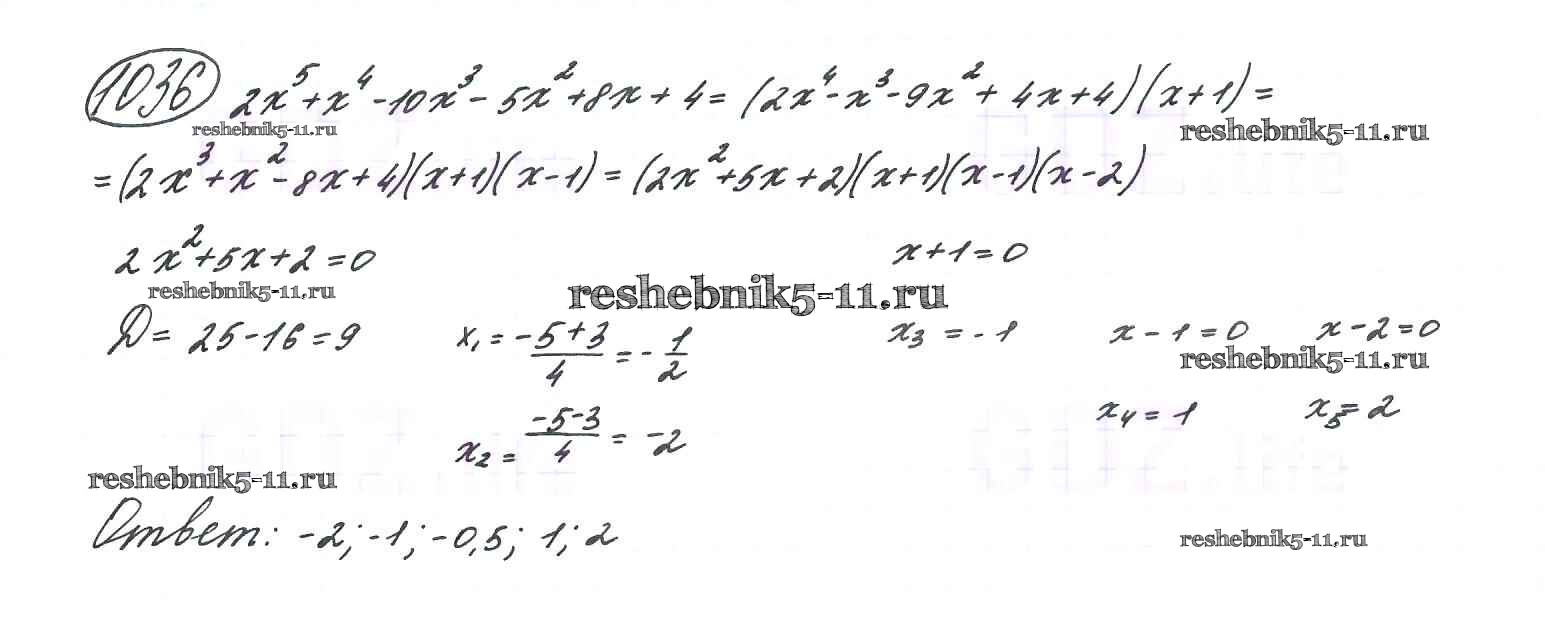 1036 2x⁵+x⁴-10x³-5x²+8x+4=(2x⁴-x³-9x²+4x+4)(x+1)=
reshebnik5-11.ru reshebnik5-11.ru
=(2x³+x²-8x+4)(x+1)(x-1)=(2x²+5x+2)(x+1)(x-1)(x-2)
2x²+5x+2=0 x+1=0
reshebnik5-11.ru reshebnik5-11.ru
Д=25-16=9 x₁=(-5+3)/4=-1/2 x₃=-1 x-1=0 x-2=0
reshebnik5-11.ru
x₂=(-5-3)/4=-2 x₄=1 x₅=2
reshebnik5-11.ru
Ответ: -2; -1; -0,5; 1; 2
reshebnik5-11.ru